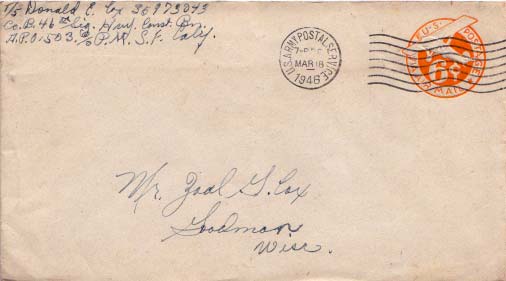 T/5 Donald E. Cox 36973043
Co. B. 46th Sig. Hvy. Const. Bn.
A.P.O. 503 c/o P.M. S.F. Calif.
U.S. ARMY POSTAL SERVICE
MAR 18
1946
U.S. POSTAGE
6¢
VIA AIR MAIL
Mr. Joal G. Cox
Goodman
Wisc.